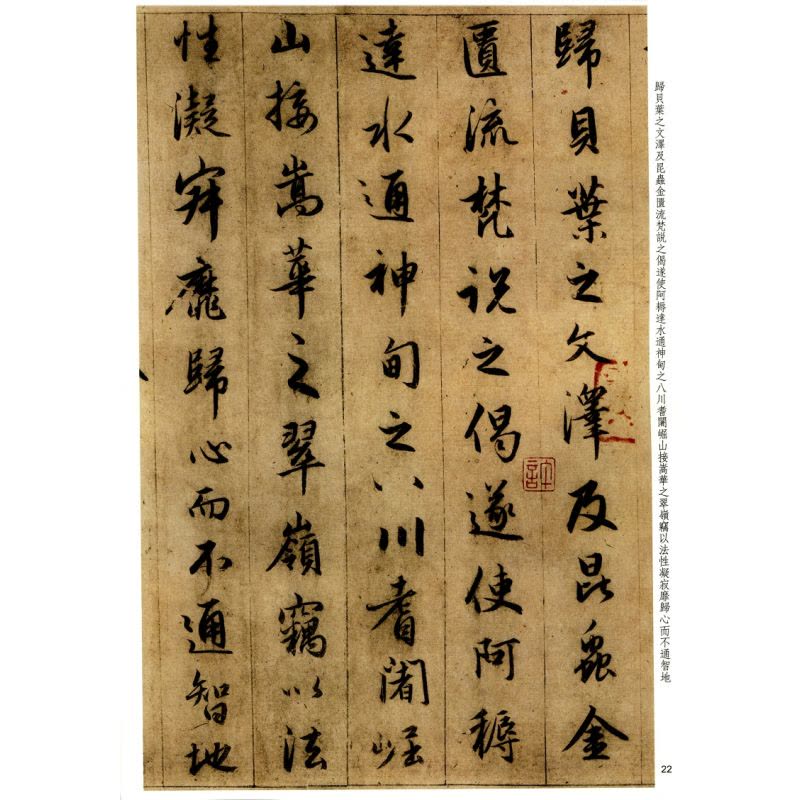 歸貝葉之文澤及昆蟲金
匱流梵説之偈遂使阿耨
達水通神甸之八川耆闍崛
山接嵩華之翠嶺竊以法
性凝寂靡歸心而不通智地
許
歸貝葉之文澤及昆蟲金匱流梵説之偈遂使阿耨達水通神甸之八川耆闍崛山接嵩華之翠嶺竊以法性凝寂靡歸心而不通智地
22